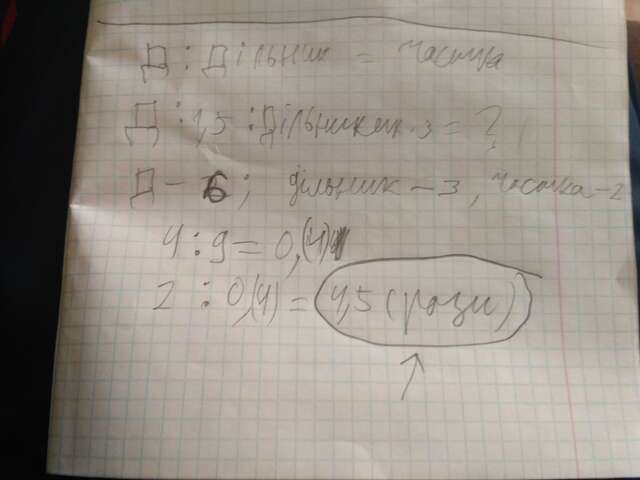 Д : Дільник = частка
Д : 1,5 : Дільник · 3 = ?
Д – 6; дільник – 3, частка – 2
4 : 9 = 0,(4)
2 : 0,(4) = 4,5 (рази)